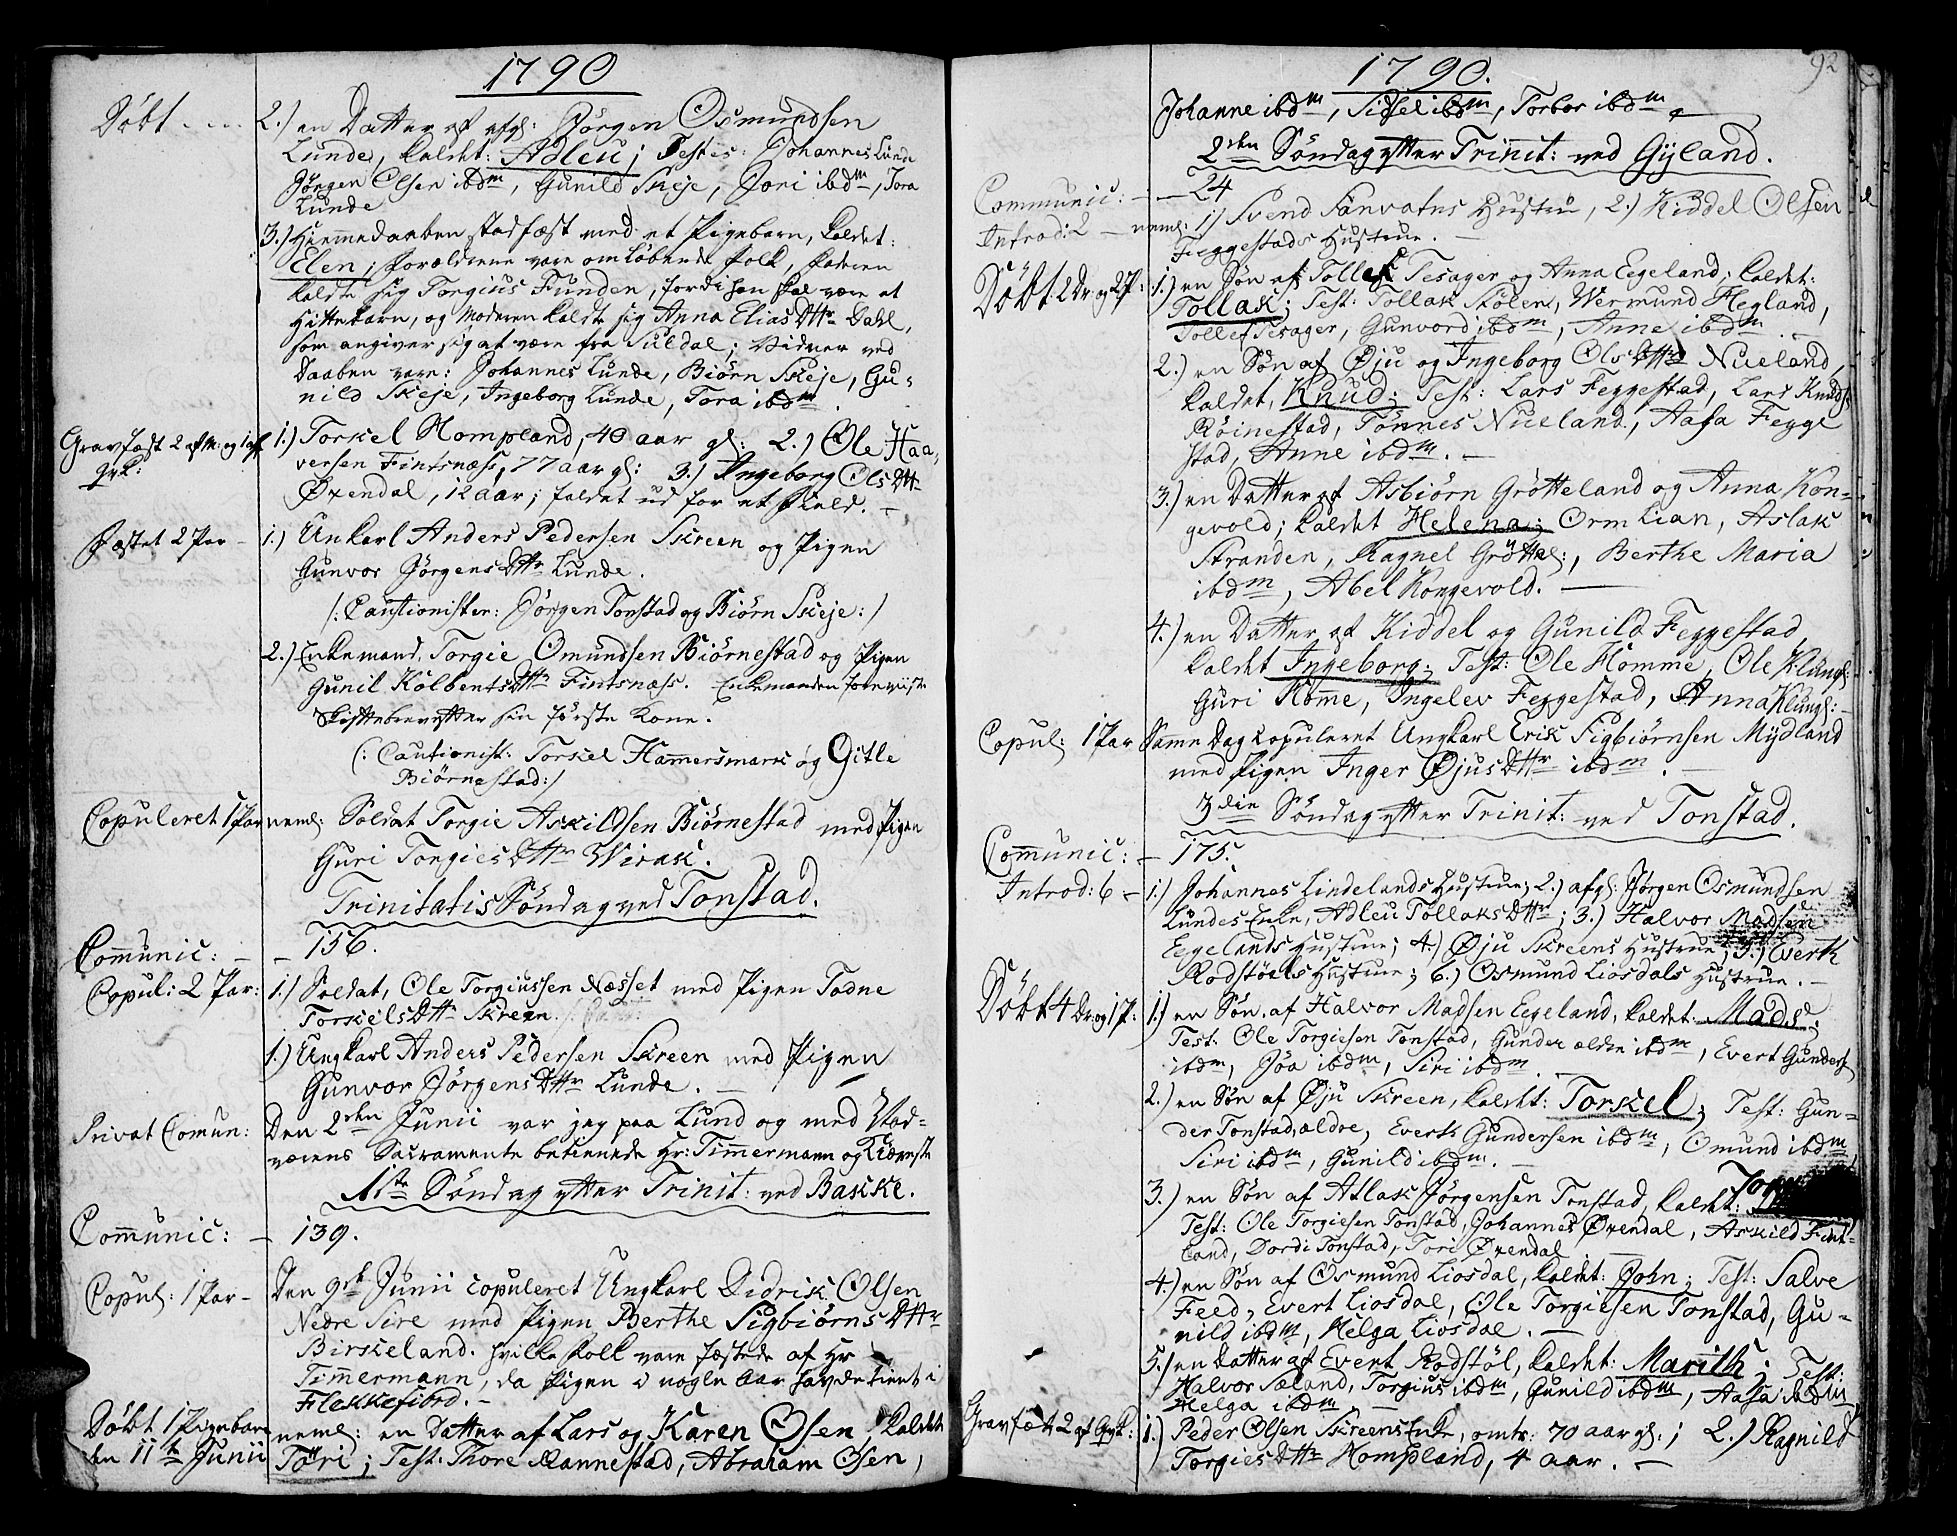 1790
Döbt
2.) en Datter af afgl: Jörgen Osmundsen
Lunde, kaldet: Adleu; Testes: Johannes Lunde
Jörgen Olsen ibdm, Gunild Skeje, Joni ibdm, Tora
Lunde
3.) Hiemmedaaben stadfæst med et Pigebarn, kaldet:
Elen; forældrene vare omløbende folk, faderen
kaldte sig Torgius Funden, fordi han skal være et
Hittebarn, og Moderen kaldte sig Anna Elias Dttr Dahl,
som angiver sig at være fra Suldal; Vidner ved
Daaben vare: Johannes Lunde, Biörn Skeje, Gu-
nild Skeje, Ingeborg Lunde, Tora ibdm.
Gravfæst 2 af M: og 1 af
Qvk:
1.) Torkel Hompland, 40 aar gl: 2.) Ole Haa-
versen Fintsnæss, 77 aar gl: 3.) Ingeborg Ols Dttr
Øxendal, 12 aar; faldet ud for et Field.
Fæstet 2 Par
1.) Unkarl Anders Pedersen Skreen og Pigen
Gunvor Jörgens Dttr Lunde.
/: Cautionister: Jörgen Tonstad og Biörn Skeje :/
2.) Enkemand Torgie Omundsen Biörnestad og Pigen
Gunil Kolbents Dttr Fintsnæss. Enkemanden foreviiste
Skiftebrev efter sin förste Kone.
(: Cautionist: Torkel Hammersmark og Gitle
Biörnestad :/
Copuleret 1 Par neml: Soldat Torgie Askildsen Biörnestad med Pigen
Guri Torgies Dttr Wirak.
Trinitatis Söndag ved Tonstad.
Communic: 156.
Copul: 2 Par:
1.) Soldat, Ole Torgiussen Næsset med Pigen Todne
Torkels Dttr Skreen.
1.) Ungkarl Anders Pedersen Skreen med Pigen
Gunvor Jörgens Dttr Lunde.
Privat Comun:
Den 2den Junii var jeg paa Lund og med Nad-
værens Sacramente betienede Hr: Timmermann og Kiæreste
1ste Söndag efter Trinit: ved Bakke.
Communic: 139.
Copul: 1 Par
Den 9de Junii copuleret Ungkarl Didrik Olsen
Nedre Sire med Pigen Berthe Sigbiörns Dttr
Birkeland. hvilke Folk vare fæstede af Hr
Timmermann, da Pigen i nogle Aar havde tient i
Flekkefiord.
Döbt 1 Pigebarn
den 11te Junii
neml: en Datter af Lars og Karen Osen, kaldet
Tori; Test: Thore Rannestad, Abraham Osen,
1790.
92
Johanne ibdm, Sidsel ibdm, Torbor ibdm
2den Söndag efter Trinit: ved Gyland.
Communic: 24
Introd: 2 neml: 1) Svend Sanvatns Hustru, 2.) Kiddel Olsen
Feggestads Hustrue.
Döbt 2 Dr. og 2 P:
1.) en Sön af Tollef Tesager og Anna Eegeland; kaldet:
Tollak; Test: Tollak Stölen, Wermund Hegland,
Tollef Tesager, Gunvord ibdm, Anne ibdm
2.) en Sön af Øju og Ingeborg Ols Dttr Nueland,
kaldet, Knud; Test: Lars Feggestad, Lars Knuds:
Röinestad, Tönnes Nueland, Aasa Fegge
stad, Anne ibdm.
3.) en Datter af Asbiörn Grötteland og Anna Kon-
gevold; kaldet Helena; Orm Lian, Aslak
Stranden, Ragnel Gröttel:, Berthe Maria
ibdm, Abel Kongevold.
4.) en Datter af Kiddel og Gunild Feggestad
kaldet Ingeborg; Test: Ole Homme, Ole Klungl:
Guri Home, Ingelev Feggestad, Anna Klungl:
Copul: 1 Par Samme Dag copuleret Ungkarl Erik Sigbiörnsen Mydland
med Pigen Inger Øjus Dttr ibdm.
3die Söndag efter Trinit: ved Tonstad.
Communic: 175.
Introd: 6
1.) Johannes Lindelands Hustrue; 2.) afgl: Jörgen Osmundsen
Lundes Enke, Adleu Tollaks Dttr; 3.) Halvor Madsen
Eegelands Hustrue; 4.) Øju Skreens Hustrue; 5.) Evert
Rodstöels Hustrue; 6.) Osmund Liosdals Hustrue.
Döbt 4 Dr. og 1 P:
1.) en Sön af Halvor Madsen Eegeland, kaldet: Mads.
Test: Ole Torgiesen Tonstad, Gunder ældre ibdm, Evert Gunders:
ibdm, Joa ibdm, Siri ibdm.
2.) en Sön af Øju Skreen, kaldet: Torkel; Test: Gun-
der Tonstad, ældre, Evert Gundersen ibdm, Omund ibdm,
Siri ibdm, Gunild ibdm.
3.) en Sön af Atlak Jörgensen Tonstad, kaldet:
Test: Ole Torgiesen Tonstad, Johannes Øxendal, Askild Fint-
land, Dordi Tonstad, Tori Øxendal
4.) en Sön af Osmund Liosdal, kaldet: John; Test: Salve
Feed, Evert Liosdal, Ole Torgiesen Tonstad, Gu-
nild ibdm, Helga Liosdal.
5.) en Datter af Evert Rodstöl, kaldet: Marith; Test:
Halvor Sæland, Torgius ibdm, Gunild ibdm, Aasa ibdm,
Helga ibdm
Gravfæst 2 af Qvk:
1.) Peder Olsen Skreens Enke, omtr: 70 aar gl:; 2.) Ragnild
Torgies Dttr Hompland, 4 aar.